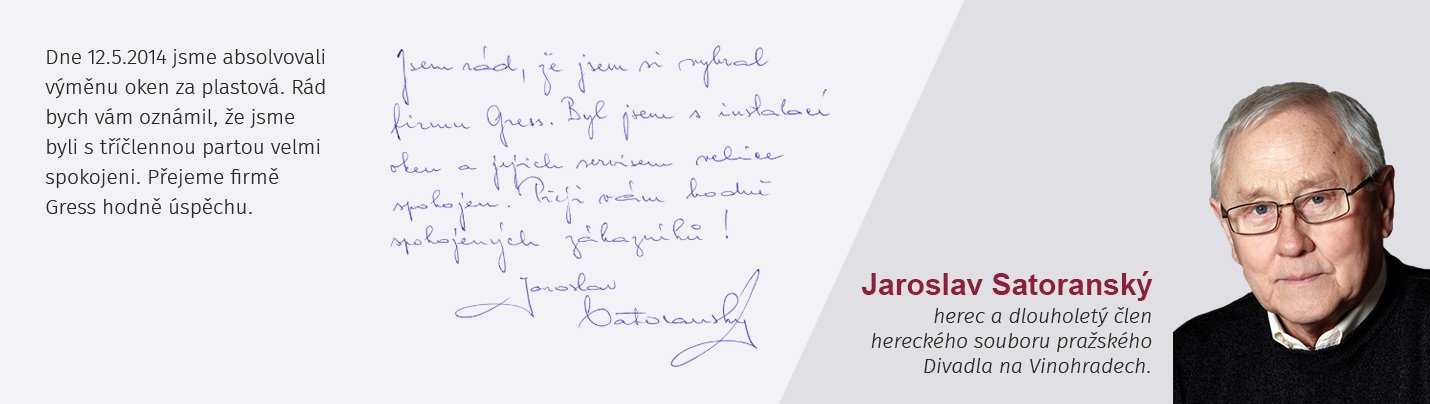 Dne 12.5.2014 jsme absolvovali
výměnu oken za plastová. Rád
bych vám oznámil, že jsme
byli s tříčlennou partou velmi
spokojeni. Přejeme firmě
Gress hodně úspěchu.
Jsem rád, že jsem si vybral
firmu Gress. Byl jsem s instalací
oken a jejich servisem velice
spokojen. Přeji vám hodně
spokojených zákazníků!
Jaroslav
Satoranský
Jaroslav Satoranský
herec a dlouholetý člen
hereckého souboru pražského
Divadla na Vinohradech.